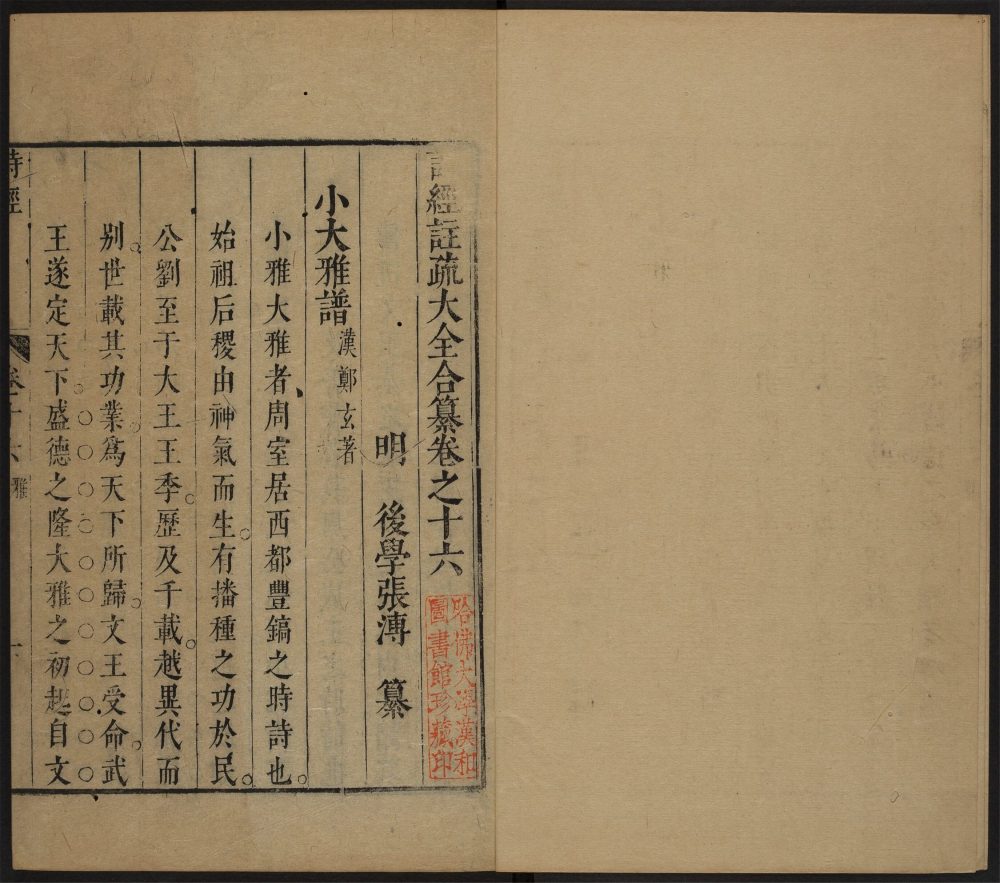 詩經註疏大全合纂卷之十六
哈佛大學漢和
圖書館珍藏印
明 後學張溥 纂
小大雅譜 漢鄭玄著
小雅大雅者周室居西都豐鎬之時詩也。
始祖后稷由神氣而生。有播種之功於民。
公劉至于大王王季。歷及千載。越異代而
別。世載其功業。爲天下所歸。文王受命。武
王遂定天下。盛德之隆大雅之初起自文
詩經
卷十六 雅